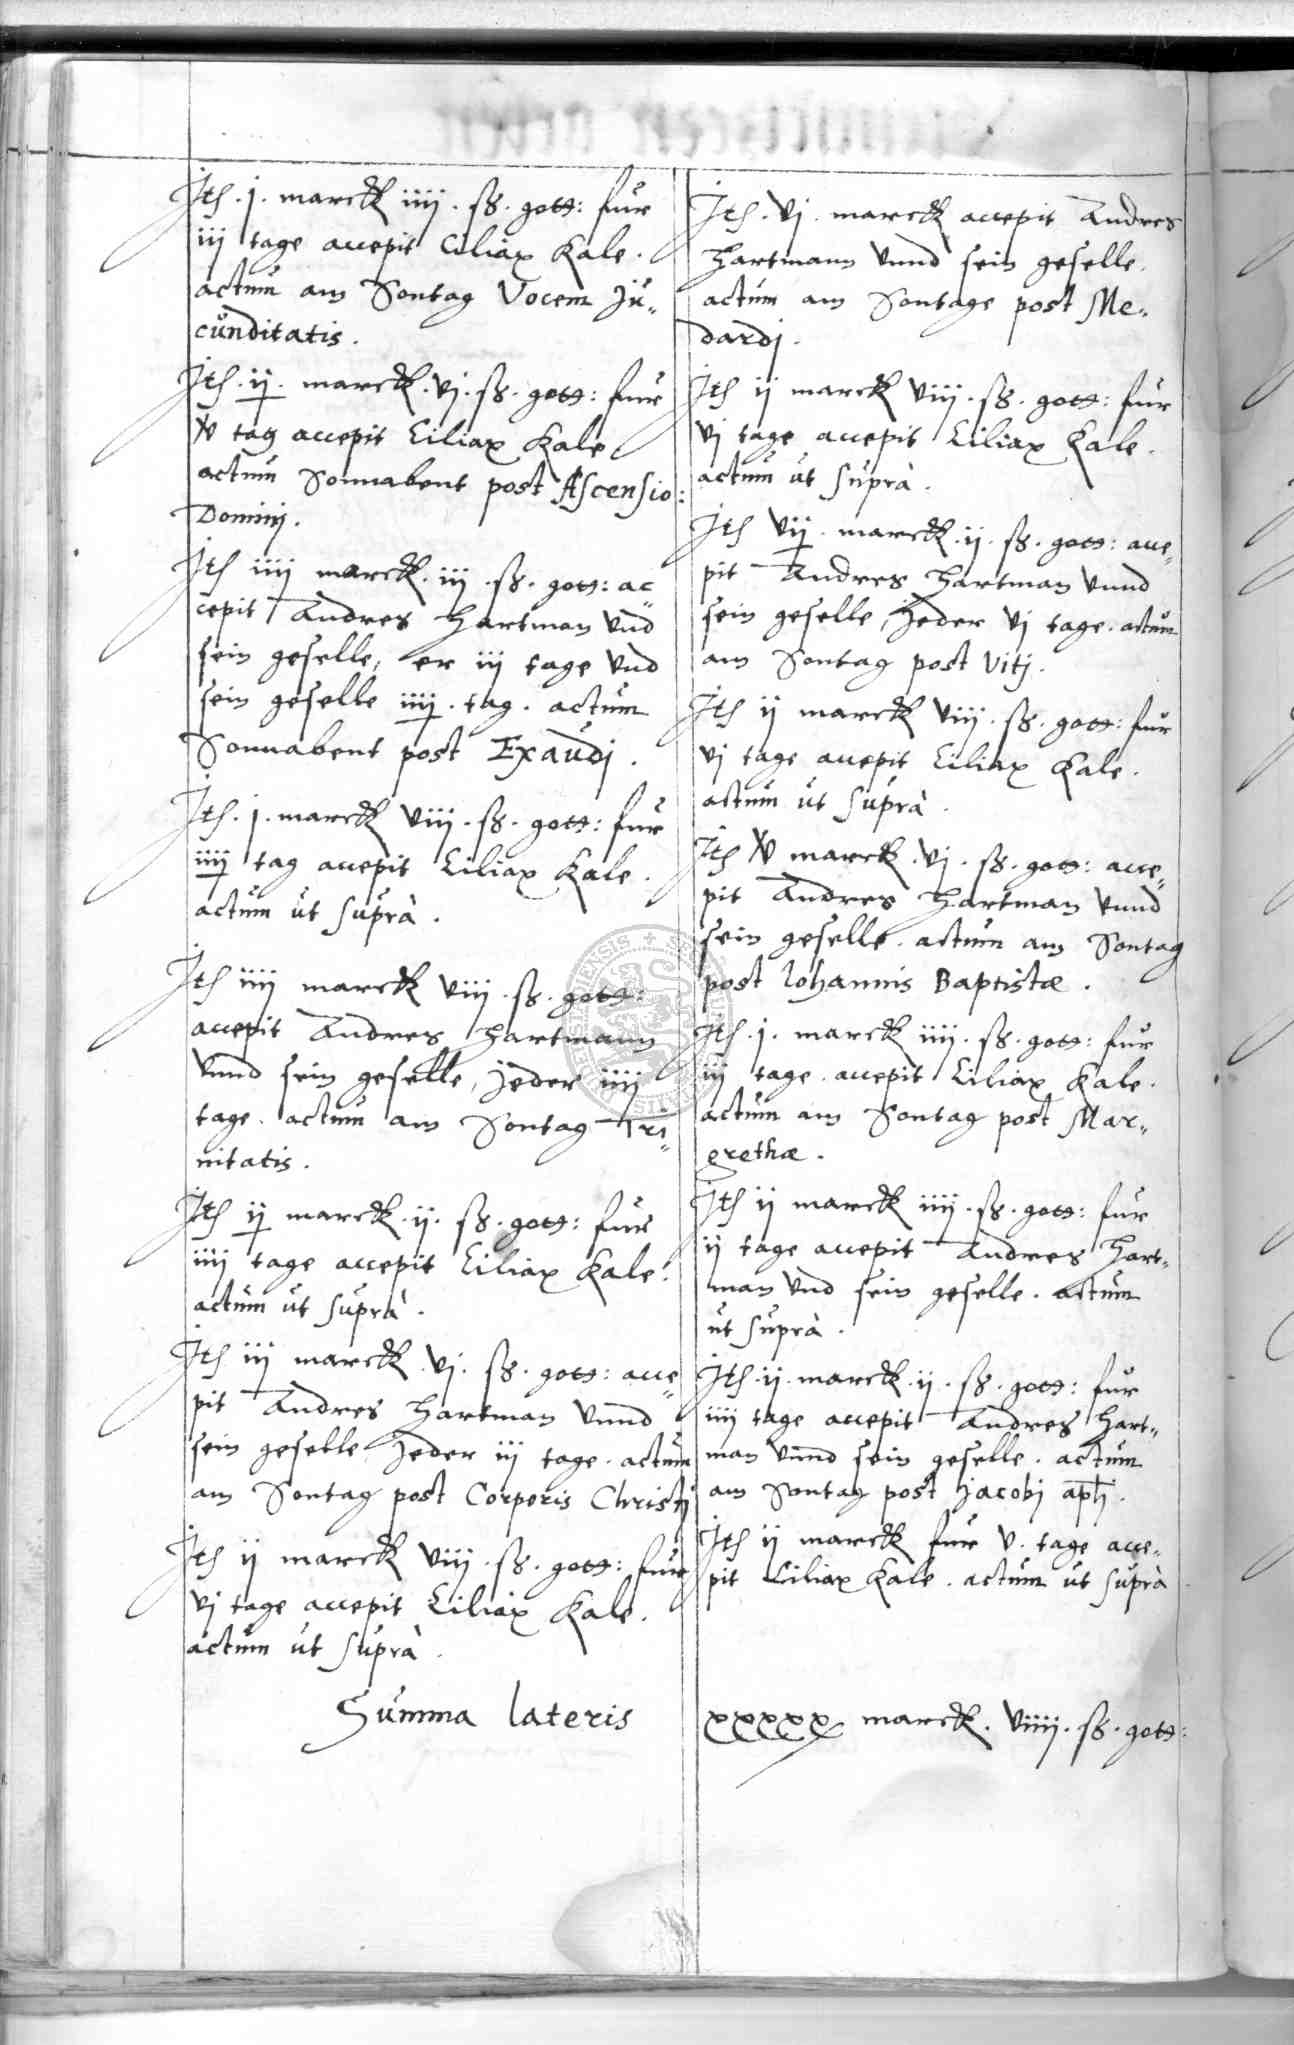 Itē . j . marckẜ iiij . ſß . gottẜ : fur
iij tage accepit Ciliax Kale .
actum am Sontag Vocem Ju⸗
cunditatis .
Itē . ij . marckẜ . vj . ſß . gottẜ : fur
v tag accepit Ciliax Kale
actum Sonnabent post Ascensio :
Dominj .
Itē iiij marckẜ . iij . ſß . gottẜ : ac⸗
cepit Andres Hartman vnd
sein geselle , er iij tage vnd
sein geselle iiij . tag . actum
Sonnabent post Exaudj .
Itē . j . marckẜ viij . ſß . gottẜ : fur
iiij tag accepit Ciliax Kale .
actum ut suprà .
Itē iiij marckẜ viij . ſß . gottẜ :
accepit Andres Hartmann
vnnd sein geselle , jeder iiij
tage . actum am Sontag Tri⸗
nitatis .
Itē ij marckẜ . ij . ſß . gottẜ : fur
iiij tage accepit Ciliax Kale .
actum ut suprà .
Itē iij marckẜ . vj . ſß . gottẜ : acce⸗
pit Andres Hartman vnnd
sein geselle jeder iij tage . actum
am Sontag post Corporis Christj
Itē ij marckẜ viij . ſß . gottẜ : fur
vj tage accepit Ciliax Kale .
actum ut suprà .
Itē . vj . marckẜ accepit Andres
Hartmann vnnd sein geselle .
actum am Sontage post Me⸗
dardj .
Itē ij marckẜ viij . ſß . gottẜ : fur
vj tage accepit Ciliax Kale .
actum ut suprà .
Itē vij . marckẜ . ij . ſß . gottẜ : acce⸗
pit Andres Hartman vnnd
sein geselle , jeder vj tage . actum
am Sontag post Vitj .
Itē ij marckẜ viij . ſß . gottẜ : fur
vj tage accepit Ciliax Kale .
actum ut suprà .
Itē v marckẜ . vj . ſß . gottẜ : acce⸗
pit Andres Hartman vnnd
sein geselle . actum am Sontag
post Iohannis Baptistæ .
Itē . j . marckẜ iiij . ſß . gottẜ : fur
iij tage . accepit Ciliax Kale .
actum am Sontag post Mar⸗
grethæ .
Itē ij marckẜ iiij . ſß . gottẜ : fur
ij tage accepit Andres Hart⸗
man vnd sein geselle . actum
ut suprà .
Itē . ij . marckẜ . ij . ſß . gottẜ : fur
iiij tage accepit Andres Hart⸗
man vnnd sein geselle . actum
am Sontag post Jacobj apl̄i .
Itē ij marckẜ fur v . tage acce⸗
pit Ciliax Kale . actum ut suprà
Summa lateris xxxxx marckẜ . viiij . ſß . gottẜ :